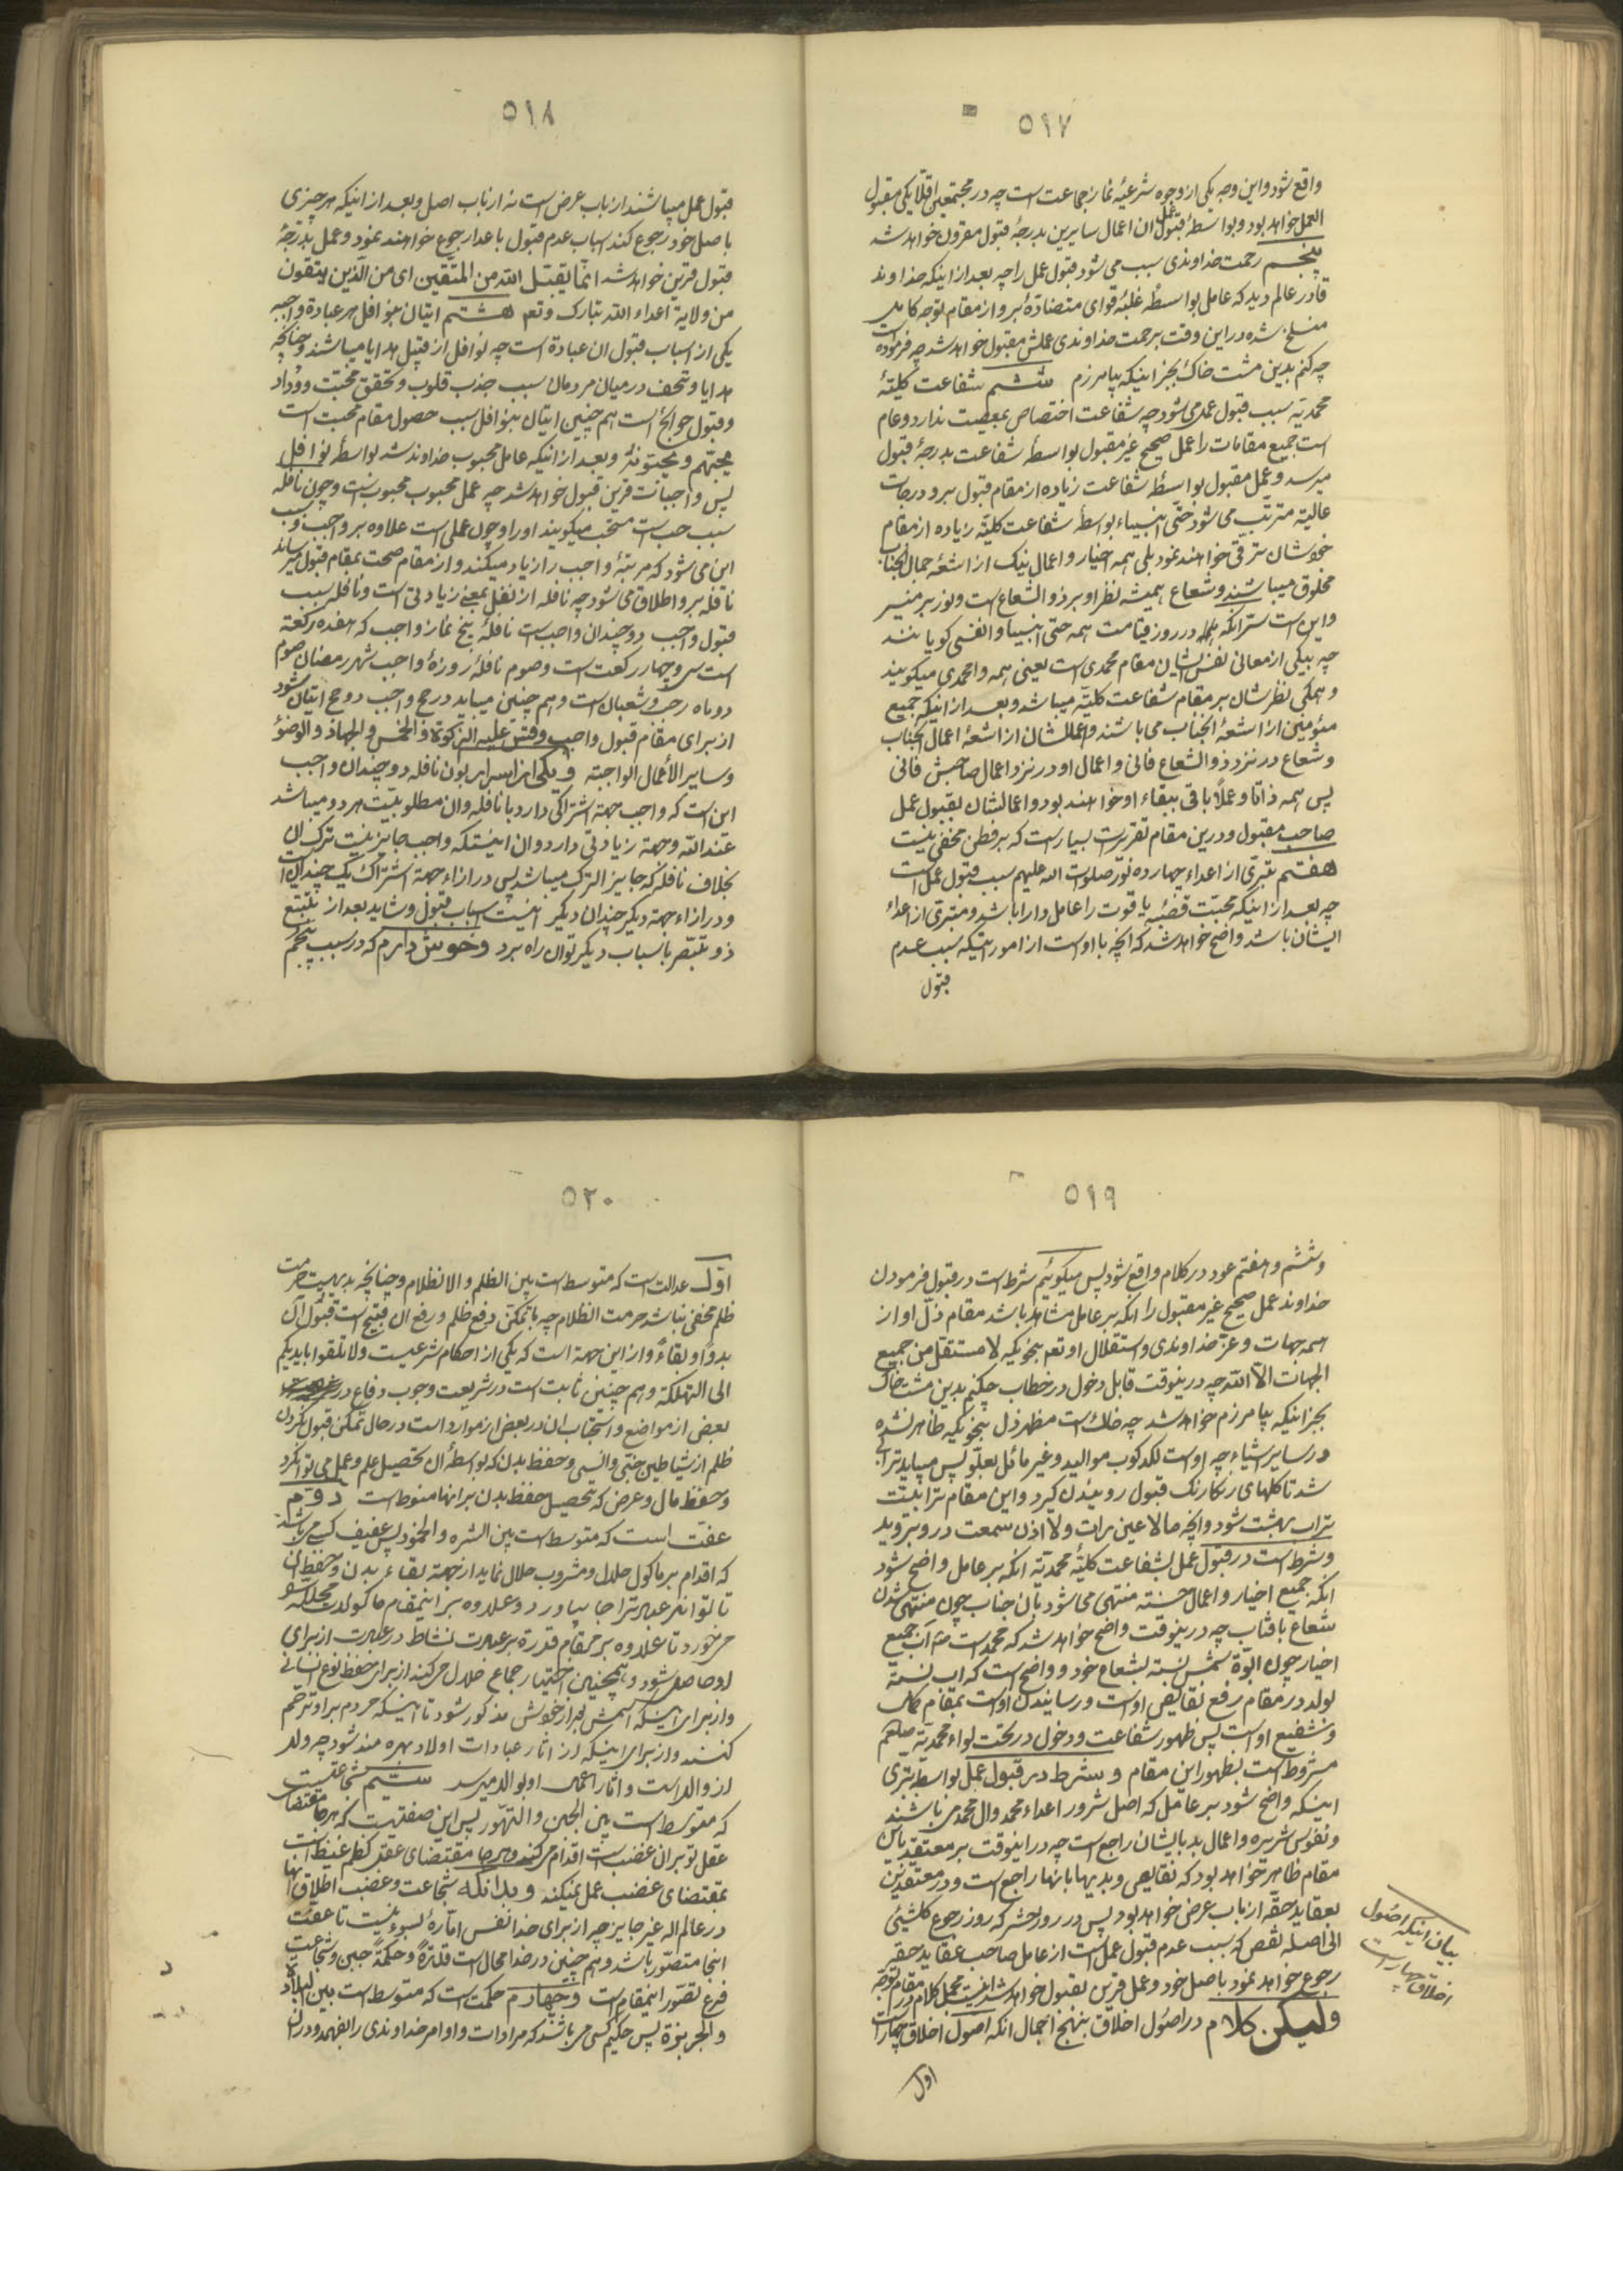 ٥١٧
واقع شود و این وجه یکی از وجوه شرعیهٔ نماز جماعت است چه در مجتمعین اقلاً یکی مقبول
العمل خواهد بود و بواسطهٔ قبول عمل ان اعمال سایرین بدرجهٔ قبول مقرون خواهد شد
پنجم رحمت خداوندی سبب می شود قبول عمل را چه بعد از اینکه خداوند
قادر عالم دید که عامل بواسطهٔ غلبهٔ قوای متضادهٔ بر او از مقام توجه کامل
منسلخ شده در این وقت برحمت خداوندی عملش مقبول خواهد شد چه فرموده است
چه کنم بدین مشت خاک بجز اینکه بیامرزم ششم شفاعت کلیهٔ
محمدیه سبب قبول عمل می شود چه شفاعت اختصاص بمعصیت ندارد و عام
است جمیع مقامات را عمل صحیح غیر مقبول بواسطهٔ شفاعت بدرجهٔ قبول
میرسد و عمل مقبول بواسطهٔ شفاعت زیاده از مقام قبول بر او درجات
عالیه مترتب می شود حتی انبیاء بواسطهٔ شفاعت کلیه زیاده از مقام
خودشان ترقی خواهند نمود بلی همه اخیار و اعمال نیک از اشعهٔ جمال انجناب
مخلوق میباشند و شعاع همیشه نظر او بر ذو الشعاع است و نور بر منیر
و این است سر انکه در روز قیامت همه حتی انبیا وا نفسی گویانند
چه بیکی از معانی نفس ایشان مقام محمدی است یعنی همه وا محمدی میگویند
و همگی نظرشان بر مقام شفاعت کلیه میباشد و بعد از اینکه جمیع
مؤمنین از اشعهٔ انجناب می باشند و اعمالشان از اشعهٔ اعمال انجناب
و شعاع در نزد ذو الشعاع فانی و اعمال او در نزد اعمال صاحبش فانی
پس همه ذاتا و عملاً باقی ببقاء او خواهند بود و اعمالشان بقبول عمل
صاحب مقبول و درین مقام تقریرات بسیار است که بر فطن مخفی نیست
هفتم تبری از اعداء چهارده نور صلوات الله علیهم سبب قبول عمل است
چه بعد از اینکه محبت قصبهٔ یاقوت را عامل دارا باشد و متبری از اعداء
ایشان باشد واضح خواهد شد که انچه با او است از اموریکه سبب عدم
قبول
٥١٨
قبول عمل میباشند از باب عرض است نه از باب اصل و بعد از اینکه هر چیزی
باصل خود رجوع کند اسباب عدم قبول باعدا رجوع خواهند نمود و عمل بدرجهٔ
قبول قرین خواهد شد انما یتقبل الله من المتقین ای من الذین یتقون
من ولایة اعداء الله تبارک و تعه هشتم اتیان بنوافل هر عبادة واجبه
یکی از اسباب قبول ان عبادة است چه نوافل از قبیل هدایا میباشند و چنانچه
هدایا و تحف در میان مردمان سبب جذب قلوب و تحقق محبت و وداد
و قبول حوائج است هم چنین اتیان بنوافل سبب حصول مقام محبت است
یحبهم و یحبونه و بعد از اینکه عامل محبوب خداوند شد بواسطهٔ نوافل
پس واجباتت قرین قبول خواهد شد چه عمل محبوب محبوب است و چون نافله
سبب حب است مستحب میگویند او را و چون عملی است علاوه بر واجب و سبب
این می شود که مرتبهٔ واجب را زیاد میکند و از مقام صحت بمقام قبول میرساند
نافله بر او اطلاق می شود چه نافله از نفل بمعنی زیادتی است و نافله سبب
قبول واجب دو چندان واجب است نافلهٔ پنج نماز واجب که هفده رکعة
است سی و چهار رکعت است و صوم نافلهٔ روزهٔ واجب شهر رمضان صوم
دو ماه رجب و شعبان است و هم چنین میباید در حج واجب دو حج اتیان شود
از برای مقام قبول واجب و قس علیه الزکوة و الخمس و الجهاد و الوضوٴ
و سایر الاعمال الواجبه و یکی از اسرار بودن نافله دو چندان واجب
این است که واجب جهة اشتراکی دارد با نافله و ان مطلوبیت هر دو میباشد
عند الله و جهة زیادتی دارد و ان اینستکه واجب جایز نیست ترک ان
بخلاف نافله که جایز الترک میباشد پس در ازاء جهة اشتراک یک چندان است
و در ازاء جهة دیگر چندان دیگر اینست اسباب قبول و شاید بعد از تتبع
ذو تبصر باسباب دیگر توان راه برد و خوش دارم که در سبب پنجم
٥١٩
و ششم و هفتم عود در کلام واقع شود پس میگوئیم شرط است در قبول فرمودن
خداوند عمل صحیح غیر مقبول را انکه بر عامل مشاهد باشد مقام ذل او از
همه جهات و عز خداوندی و استقلال او تعه بنحویکه لا مستقل من جمیع
الجهات الا الله چه درینوقت قابل دخول در خطاب چکنم بدین مشت خاک
بجز اینکه بیامرزم خواهد شد چه خاک است مظهر ذل بنحویکه ظاهر نشده
در سایر اشیاء چه او است لگدکوب موالید و غیر مائل بعلو پس میباید تراب
شد تا گلهای رنگارنگ قبول روئیدن گیرد و این مقام ترابیت
تراب بهشت شود و انچه ما لا عین رات و لا اذن سمعت در او بروید
و شرط است در قبول عمل بشفاعت کلیهٔ محمدیه انکه بر عامل واضح شود
انکه جمیع اخیار و اعمال حسنه منتهی می شود بان جناب چون منتهی شدن
شعاع بافتاب چه درینوقت واضح خواهد شد که محمد است ص اب جمیع
اخیار چون ابوة شمس نسبة بشعاع خود و واضح است که اب نسبة
بولد در مقام رفع نقایص او است و رسانیدن او است بمقام کمال
و شفیع او است پس ظهور شفاعت و دخول در تحت لواء محمدیه صلعم
مشروط است بظهور این مقام و شرط در قبول عمل بواسطه تبری
اینکه واضح شود بر عامل که اصل شرور اعداء محمد و ال محمد می باشند
و نفوس شریره و اعمال بد بایشان راجع است چه در اینوقت بر معتقد باین
مقام ظاهر خواهد بود که نقایص و بدیها بانها راجع است و در معتقدین
بعقاید حقه از باب عرض خواهد بود پس در روز حشر که روز رجوع کلشئ
الی اصله نقص که سبب عدم قبول عمل است از عامل صاحب عقاید حقه
رجوع خواهد نمود باصل خود و عمل قرین بقبول خواهد شد اینست مجمل کلام در مقام توجه
ولیکن کلام در اصول اخلاق بنهج اجمال انکه اصول اخلاق چهار است
بیان اینکه اصول
اخلاق چهار است
اول
٥٢٠
اول عدالت است که متوسط است بین الظلم و الانظلام و چنانچه بدیهیت حرمت
ظلم مخفی نباشد حرمت انظلام چه با تمکن دفع ظلم و رفع ان قبیح است قبول آن
بدوا و بقاءً و از این جهة است که یکی از احکام شرعیست و لا تلقوا بایدیکم
الی التهلکة و هم چنین ثابت است در شریعت وجوب دفاع در
بعضی از مواضع و استحباب ان در بعض از موارد است در حال تمکن قبول نکردن
ظلم از شیاطین جنی و انسی و حفظ بدن که بواسطهٔ ان تحصیل علم و عمل می توان کرد
و حفظ مال و عرض که تحصیل حفظ بدن بر انها منوط است دوم
عفت است که متوسط است بین الشره و الخمود پس عفیف کسی می باشد
که اقدام بر ماکول حلال و مشروب حلال نماید از جهة بقاء بدن و حفظ ان
تا تواند عبادترا جا بیاورد و علاوه بر اینمقام ماکولات محلله
می خورد تا علاوه بر مقام قدرة بر عبادت نشاط در عبادت از برای
او حاصل شود و همچنین اختیار جماع حلال می کند از برای حفظ نوع انسانی
و از برای اینکه اسمش بعد از خودش مذکور شود تا اینکه مردم بر او ترحم
کنند و از برای اینکه از اثار عبادات اولاد بهره مند شود چه ولد
از والد است و اثار اعمال او بوالد میرسد سیم شجاعتست
که متوسط است بین الجبن و التهور پس این صفتیست که هر جا مقتضای
عقل توبران غضب است اقدام می کند و هر جا مقتضای عقل کظم غیظ است
بمقتضای غضب عمل نمیکند و بدانکه شجاعت و غضب اطلاق انها
در عالم اله غیر جایز چه از برای خدا نفس امارهٔ بسوء نیست تا عفت
انجا متصور باشد و هم چنین در خدا محال است قدرةً و حکمةً جبن و شجاعت
فرع تصور اینمقام است و چهارم حکمت است که متوسط است بین البلادة
و الجربزة پس حکیم کسی می باشد که مرادات و اوامر خداوندی را بفهمد و در ان